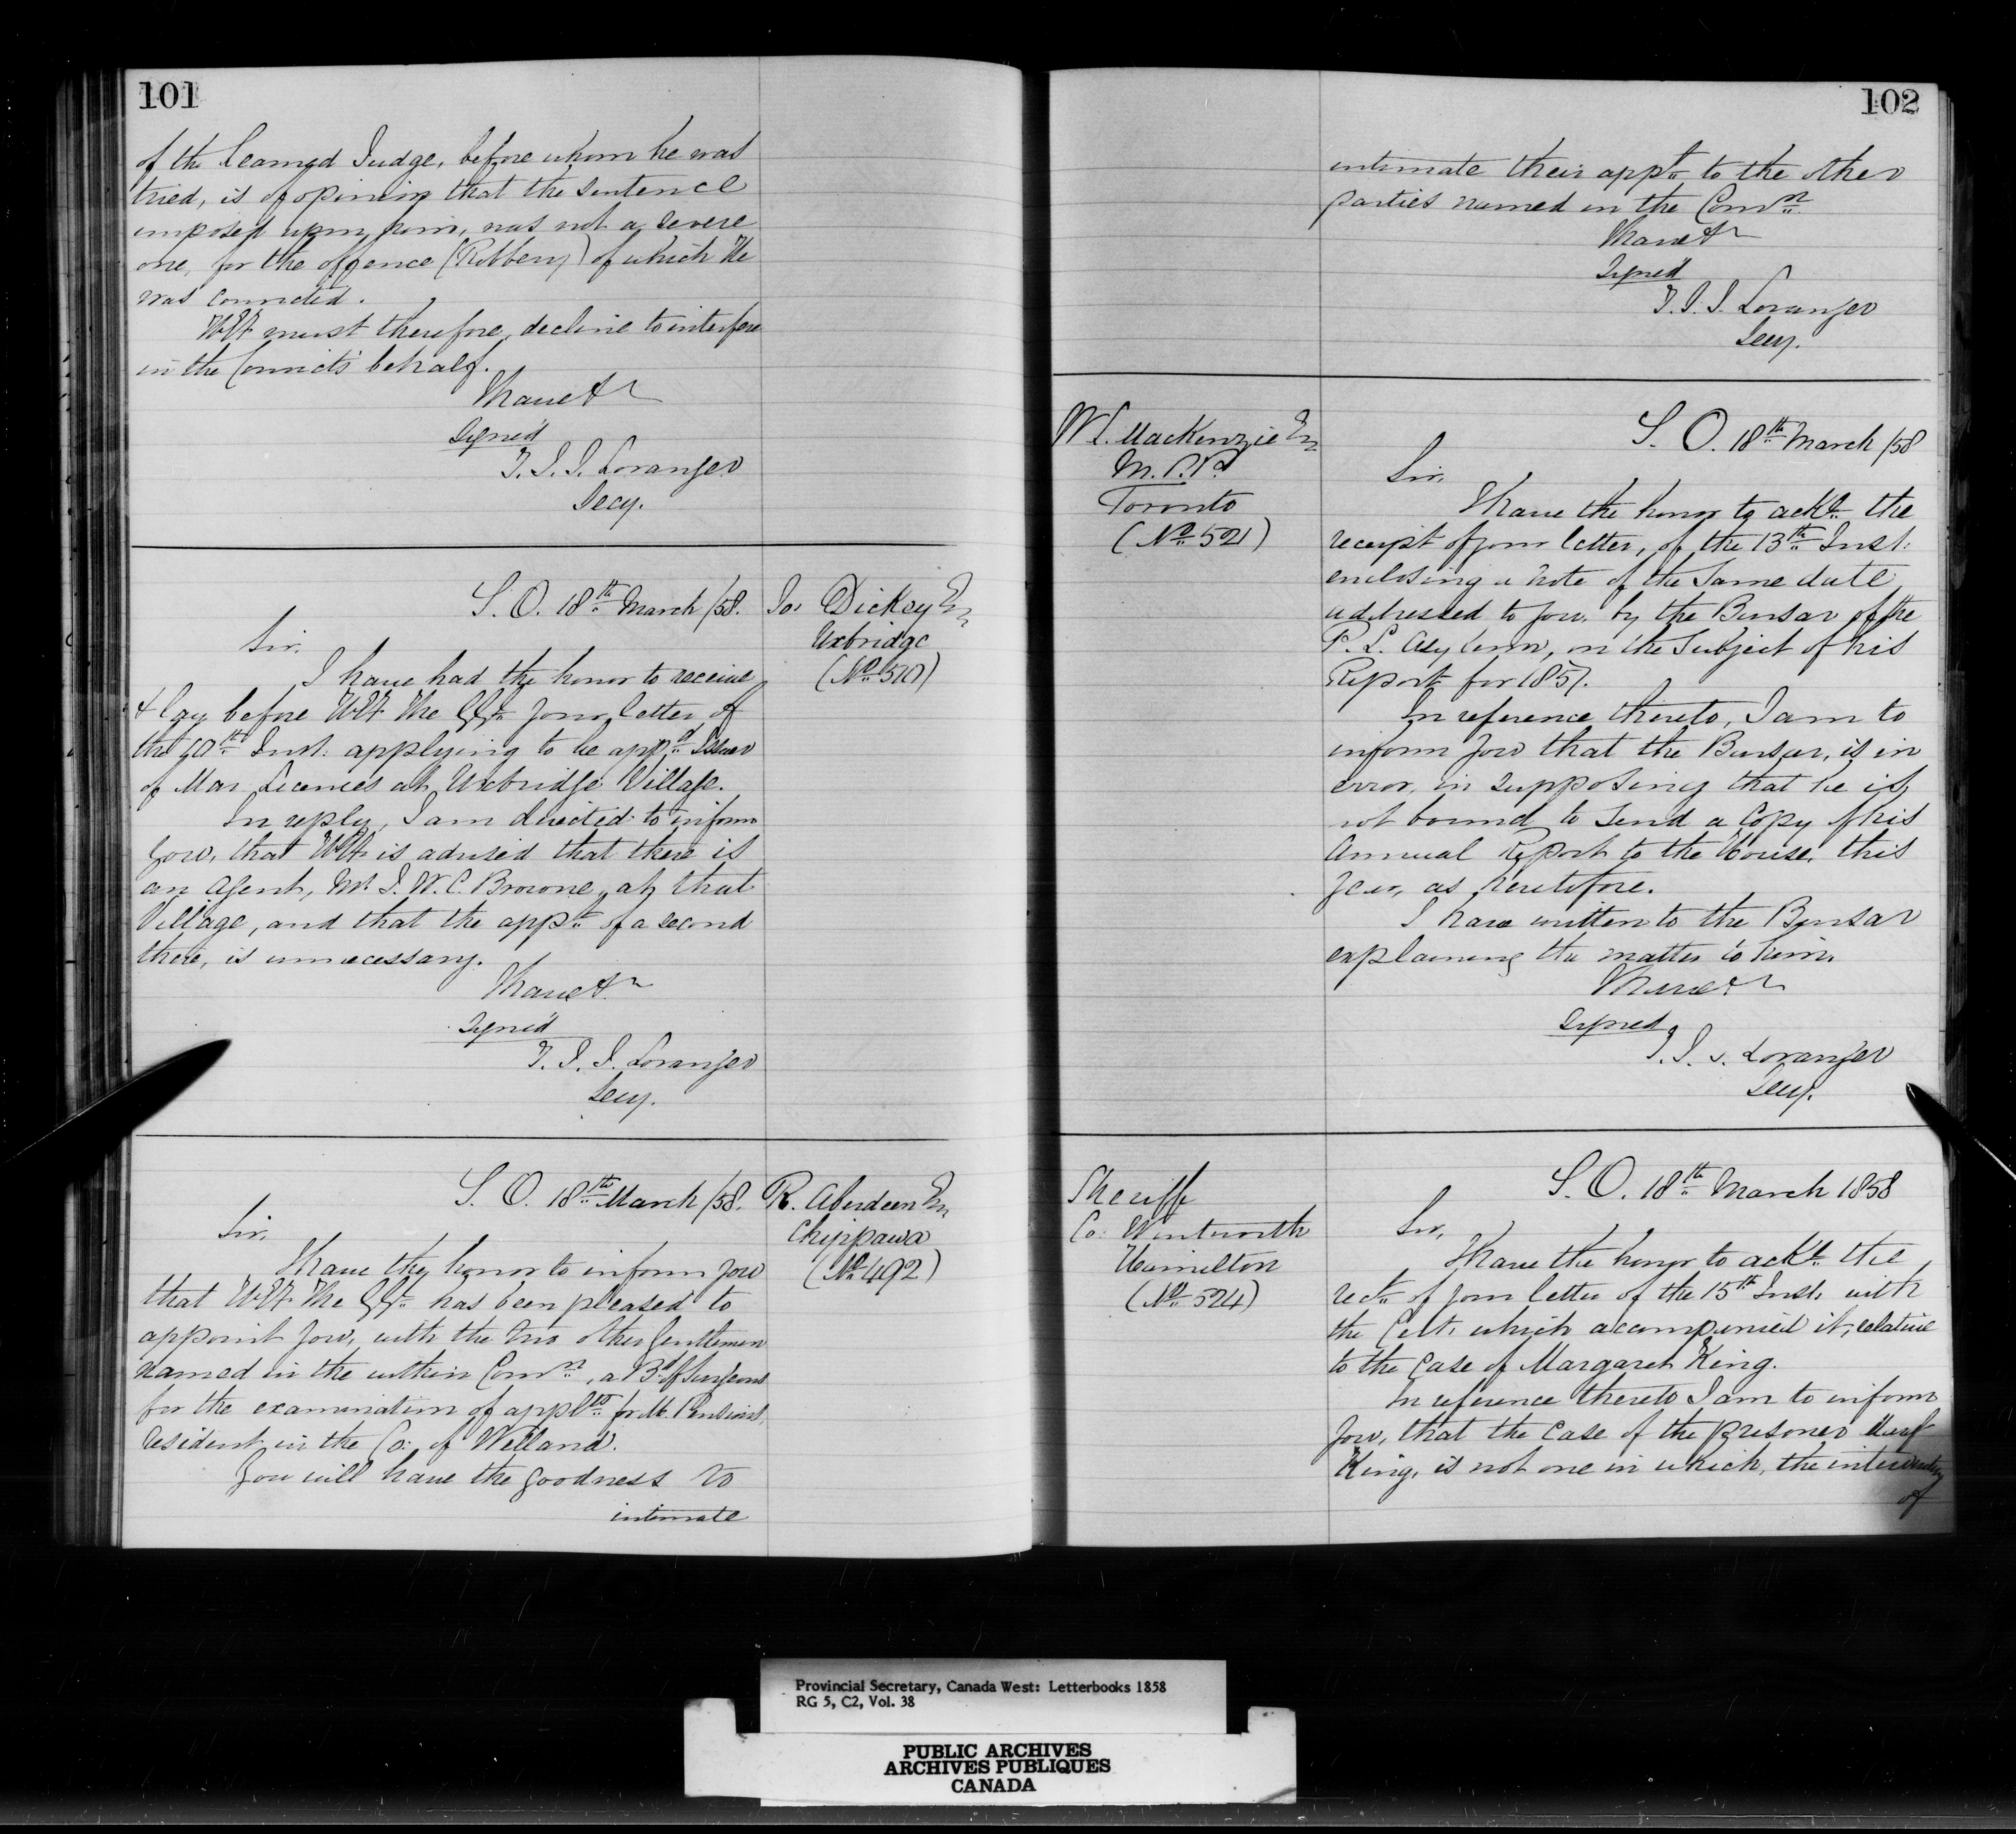 101
of the learned Judge, before whom he was
tried, is of opinion that the sentence
imposed upon him, was not a severe
one, for the offence (Robbery) of which He
was convicted.
HE must therefore, decline to interfere
in the Convict's behalf.
I have &c
Signed
T. J. J. Loranger
Secy.
S. O. 18th March /58.
Jos Dickey Esq
Uxbridge
(No 510)
Sir,
I have had the honor to receive
& lay before HE The GG your letter of
the 10th Inst. applying to be appd Issuer
of Mar Licences at Uxbridge Village.
In reply, I am directed to inform
you, that HE is advised that there is
an Agent, Mr J. W. C. Browne, at that
Village, and that the appt of a second
there, is unnecessary.
I have &c
Signed
T. J. J. Loranger
Secy.
S. O. 18th March /58.
R. Aberdeen Esq
Chippawa
(No 492)
Sir,
I have the honor to inform you
that HE The GG has been pleased to
appoint you, with the two other Gentlemen
named in the within Comn, a Bd of Surgeons
for the examination of applts for M. Pensions,
resident in the Co: of Welland.
You will have the goodness to
intimate
102
intimate their appt to the other
parties named in the Comn
I have &c
Signed
T. J. J. Loranger
Secy.
W L. Mackenzie Esq
M. P. P.
Toronto
(No 521)
S. O. 18th March /58
Sir,
I have the honor to ackt the
receipt of your letter, of the 13th Inst:
enclosing a note of the same date
addressed to you, by the Bursar of the
P. L. Asylum, on the subject of his
Report for 1857.
In reference thereto, I am to
inform you that the Bursar, is in
error, in supposing that he is
not bound to send a Copy of his
Annual Report to the House, this
year, as heretofore.
I have written to the Bursar
explaining the matter to him.
I have &c
Signed
T. J. J. Loranger
Secy.
Sheriff
Co: Wentworth
Hamilton
(No 524)
S. O. 18th March 1858
Sir,
I have the honor to ackt the
rect of your letter of the 15th Inst, with
the Cert. which accompanied it, relative
to the case of Margaret King.
In reference thereto I am to inform
you, that the case of the prisoner Margt
King, is not one in which, the intervention
of
Provincial Secretary, Canada West: Letterbooks 1858
RG 5, C2, Vol. 38
PUBLIC ARCHIVES
ARCHIVES PUBLIQUES
CANADA